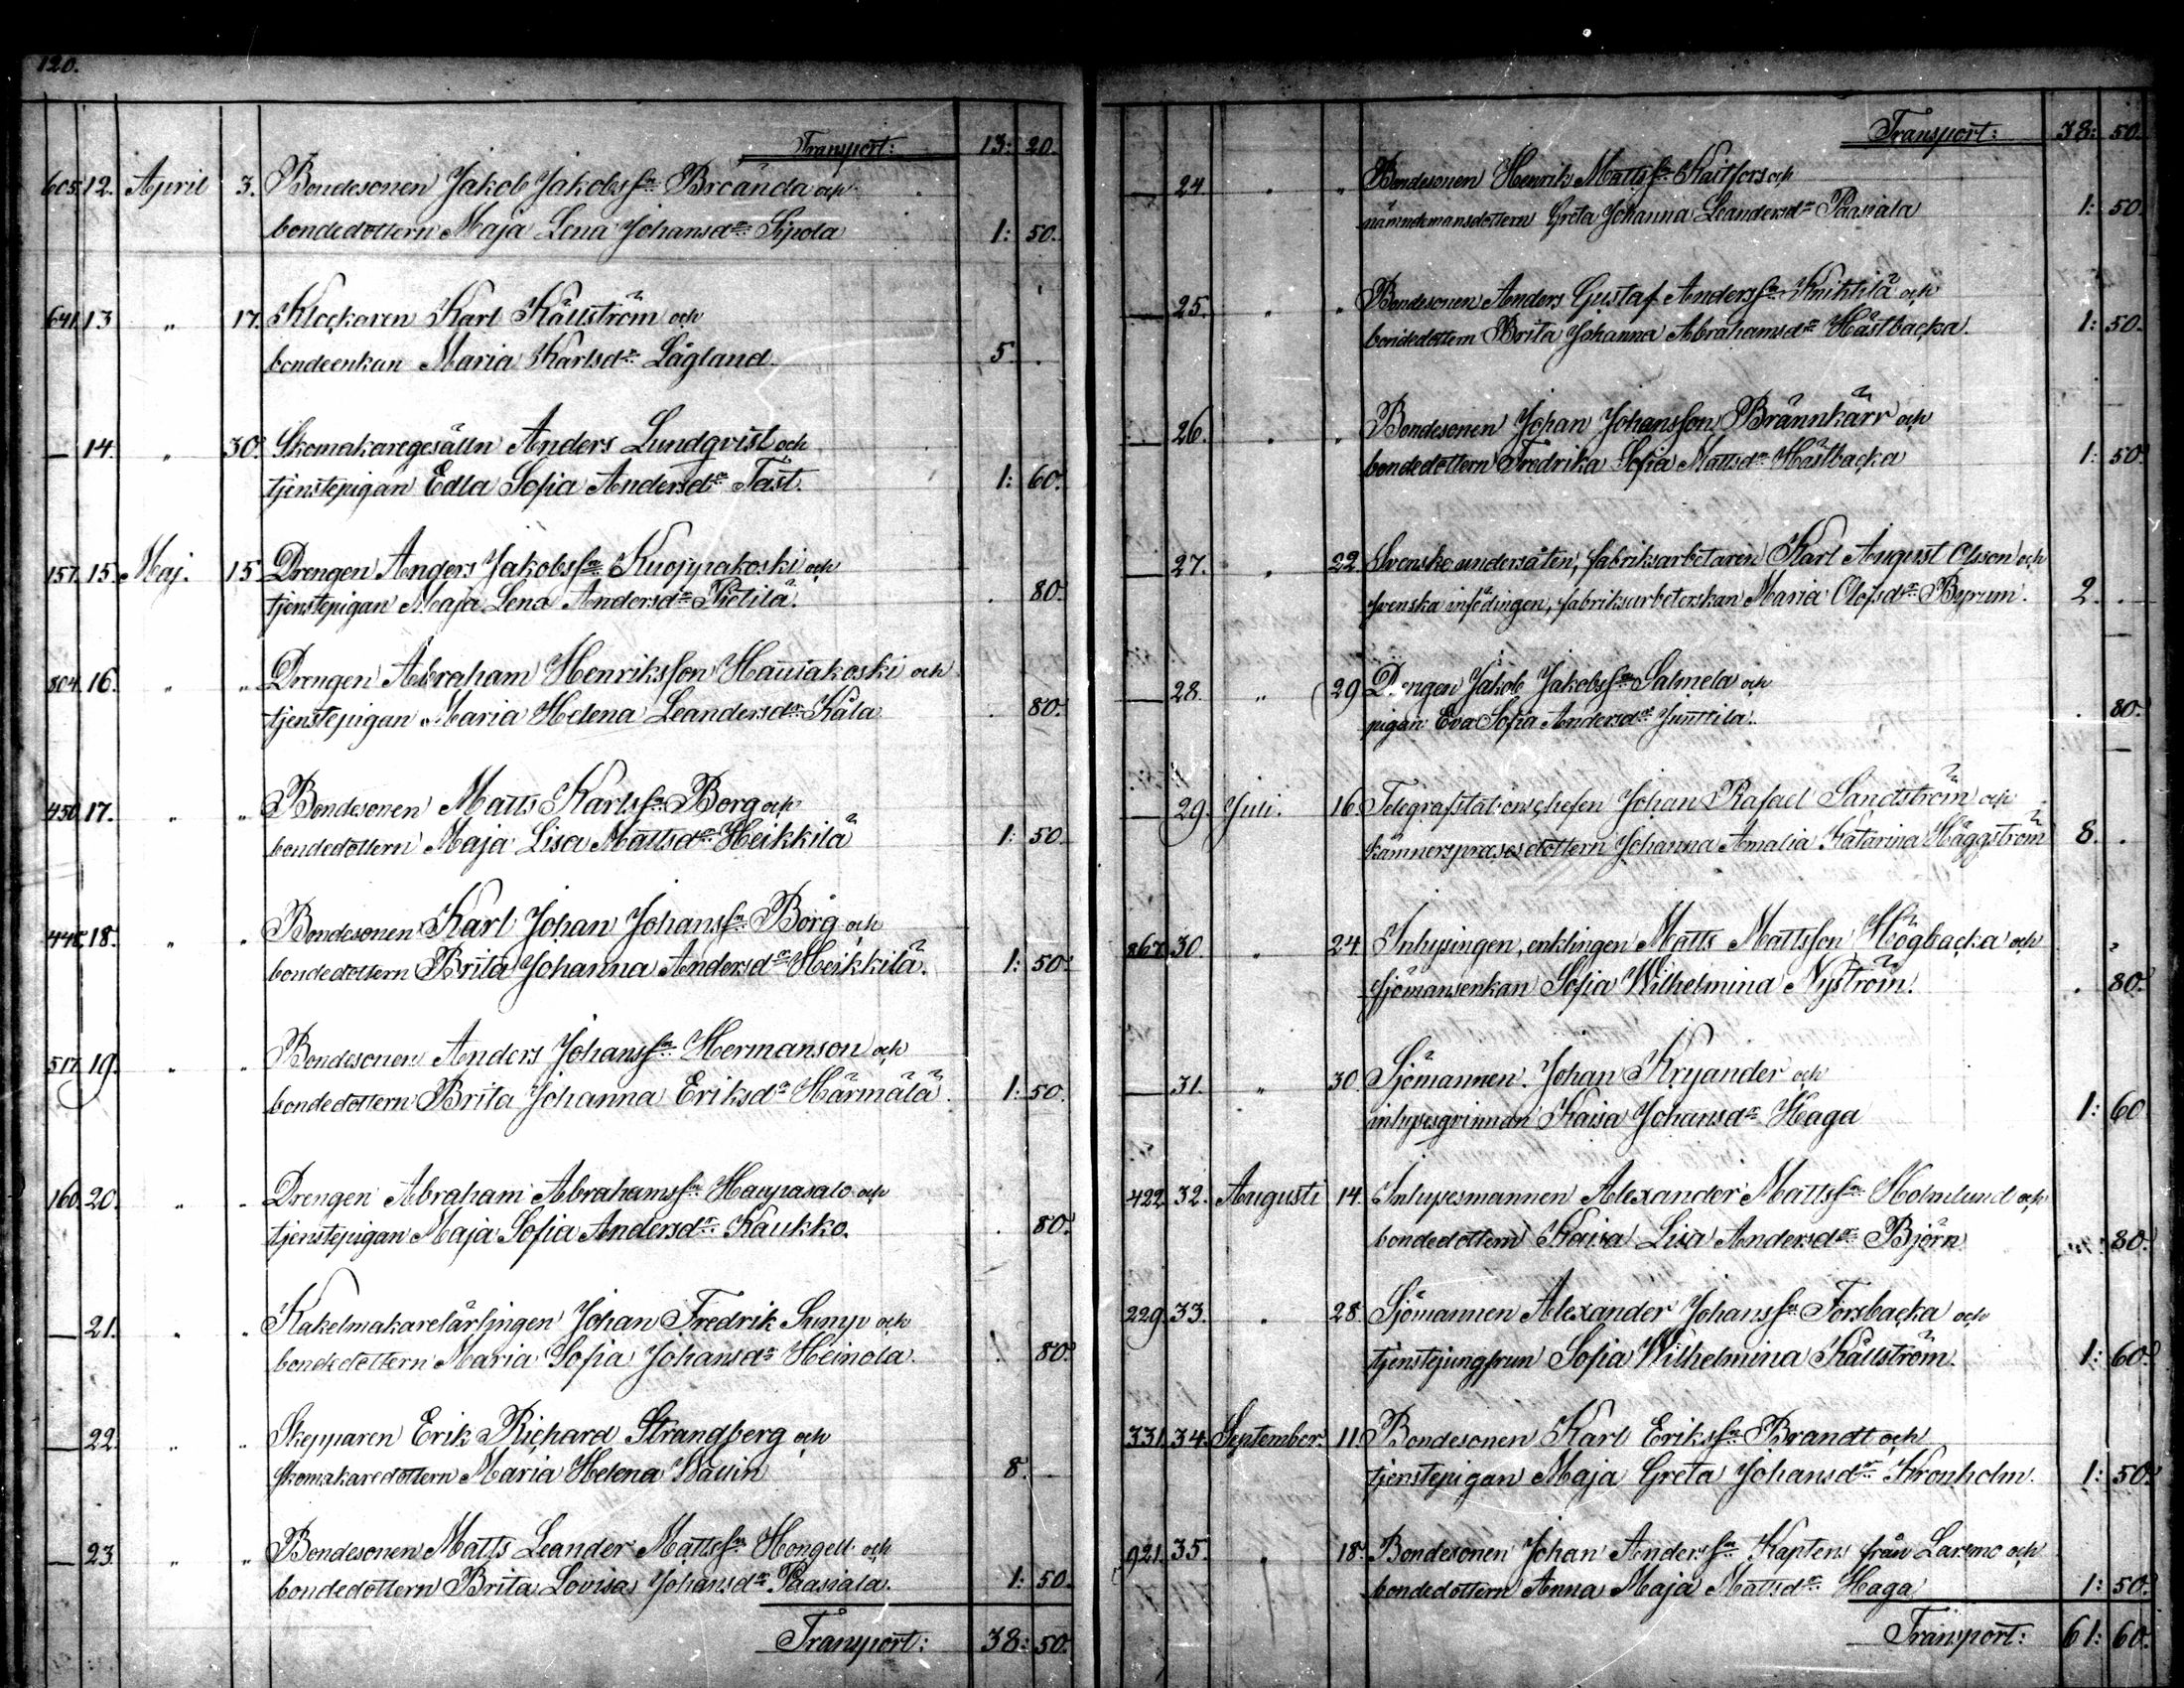 120.
Transport: 13: 20.
605. 12. April 3. Bondesonen Jakob Jakobsson Broända och
bondedottern Maja Lena Johansdr Sipola 1: 50.
641. 13 " 17. Klockaren Karl Källström och
bondeenkan Maria Karlsdr Lågland. 5. .
— 14. " 30. Skomakaregesälln Anders Lundqvist och
tjenstepigan Edla Sofia Andersdr Tast. 1: 60.
157. 15. Maj. 15 Drengen Anders Jakobsson Kuojpakoski och
tjenstepigan Maja Lena Andersdr Pietilä. . 80.
804. 16. " " Drengen Abraham Henriksson Hautakoski och
tjenstepigan Maria Helena Leandersdr Kåla . 80.
450. 17. " " Bondesonen Matts Karlsson Borg och
bondedottern Maja Lisa Mattsdr Heikkilä 1: 50.
448. 18. " " Bondesonen Karl Johan Johansson Borg och
bondedottern Brita Johanna Andersdr Heikkilä. 1: 50.
517. 19. " " Bondesonen Anders Johansson Hermanson och
bondedottern Brita Johanna Eriksdr Härmälä. 1: 50.
160. 20. " " Drengen Abraham Abrahamsson Haapasalo och
tjenstepigan Maja Sofia Andersdr Kaukko. . 80.
— 21. " " Kakelmakarelärlingen Johan Fredrik Sump och
bondedottern Maria Sofia Johansdr Heinola. . 80.
— 22. " " Skepparen Erik Richard Strandberg och
skomakaredottern Maria Helena Wallin 8. —
— 23 " " Bondesonen Matts Leander Mattsson Hongell och
bondedottern Brita Lovisa Johansdr Paasiala. 1: 50.
Transport: 38: 50.
Transport: 38: 50.
— 24 " " Bondesonen Henrik Mattsson Kaitfors och
nämndemansdottern Greta Johanna Leandersdr Paasiala 1: 50.
— 25. " " Bondesonen Anders Gustaf Andersson Knihtilä och
bondedottern Brita Johanna Abrahamsdr Hästbacka. 1: 50.
— 26. " " Bondesonen Johan Johansson Brännkärr och
bondedottern Fredrika Sofia Mattsdr Hästbacka 1: 50.
— 27. " 22. Svenske undersåten, fabriksarbetaren Karl August Olsson och
svenska infödingen, fabriksarbeterskan Maria Olofsdr Byrum. 2. .
— 28. " 29 Drengen Jakob Jakobsson Salmela och
pigan Eva Sofia Andersdr Junttila. . 80.
— 29. Juli. 16. Telegrafstationschefen Johan Rafael Sandström och
kämnerspræsesdottern Johanna Amalia Katarina Häggström 8. .
867. 30. " 24 Inhysingen, enklingen Matts Mattsson Högbacka och
sjömansenkan Sofia Wilhelmina Nyström. . 80.
— 31. " 30. Sjömannen Johan Kryander och
inhysesqvinnan Kaisa Johansdr Haga 1: 60.
422. 32. Augusti 14. Inhysesmannen Alexander Mattsson Holmlund och
bondedottern Kaisa Lisa Andersdr Björn . 80.
229. 33. " 28. Sjömannen Alexander Johansson Forsbacka och
tjenstejungfrun Sofia Wilhelmina Källström. 1: 60.
331. 34. September. 11. Bondesonen Karl Eriksson Brandt och
tjenstepigan Maja Greta Johansdr Kronholm. 1: 50.
921. 35. " 18. Bondesonen Johan Andersson Kaptens från Larsmo och
bondedottern Anna Maja Mattsdr Haga 1: 50.
Transport: 61: 60.